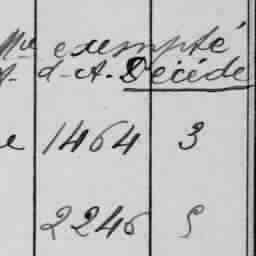 Mle exempté
d. d-A. Décédé
e 1464 3
2246 5